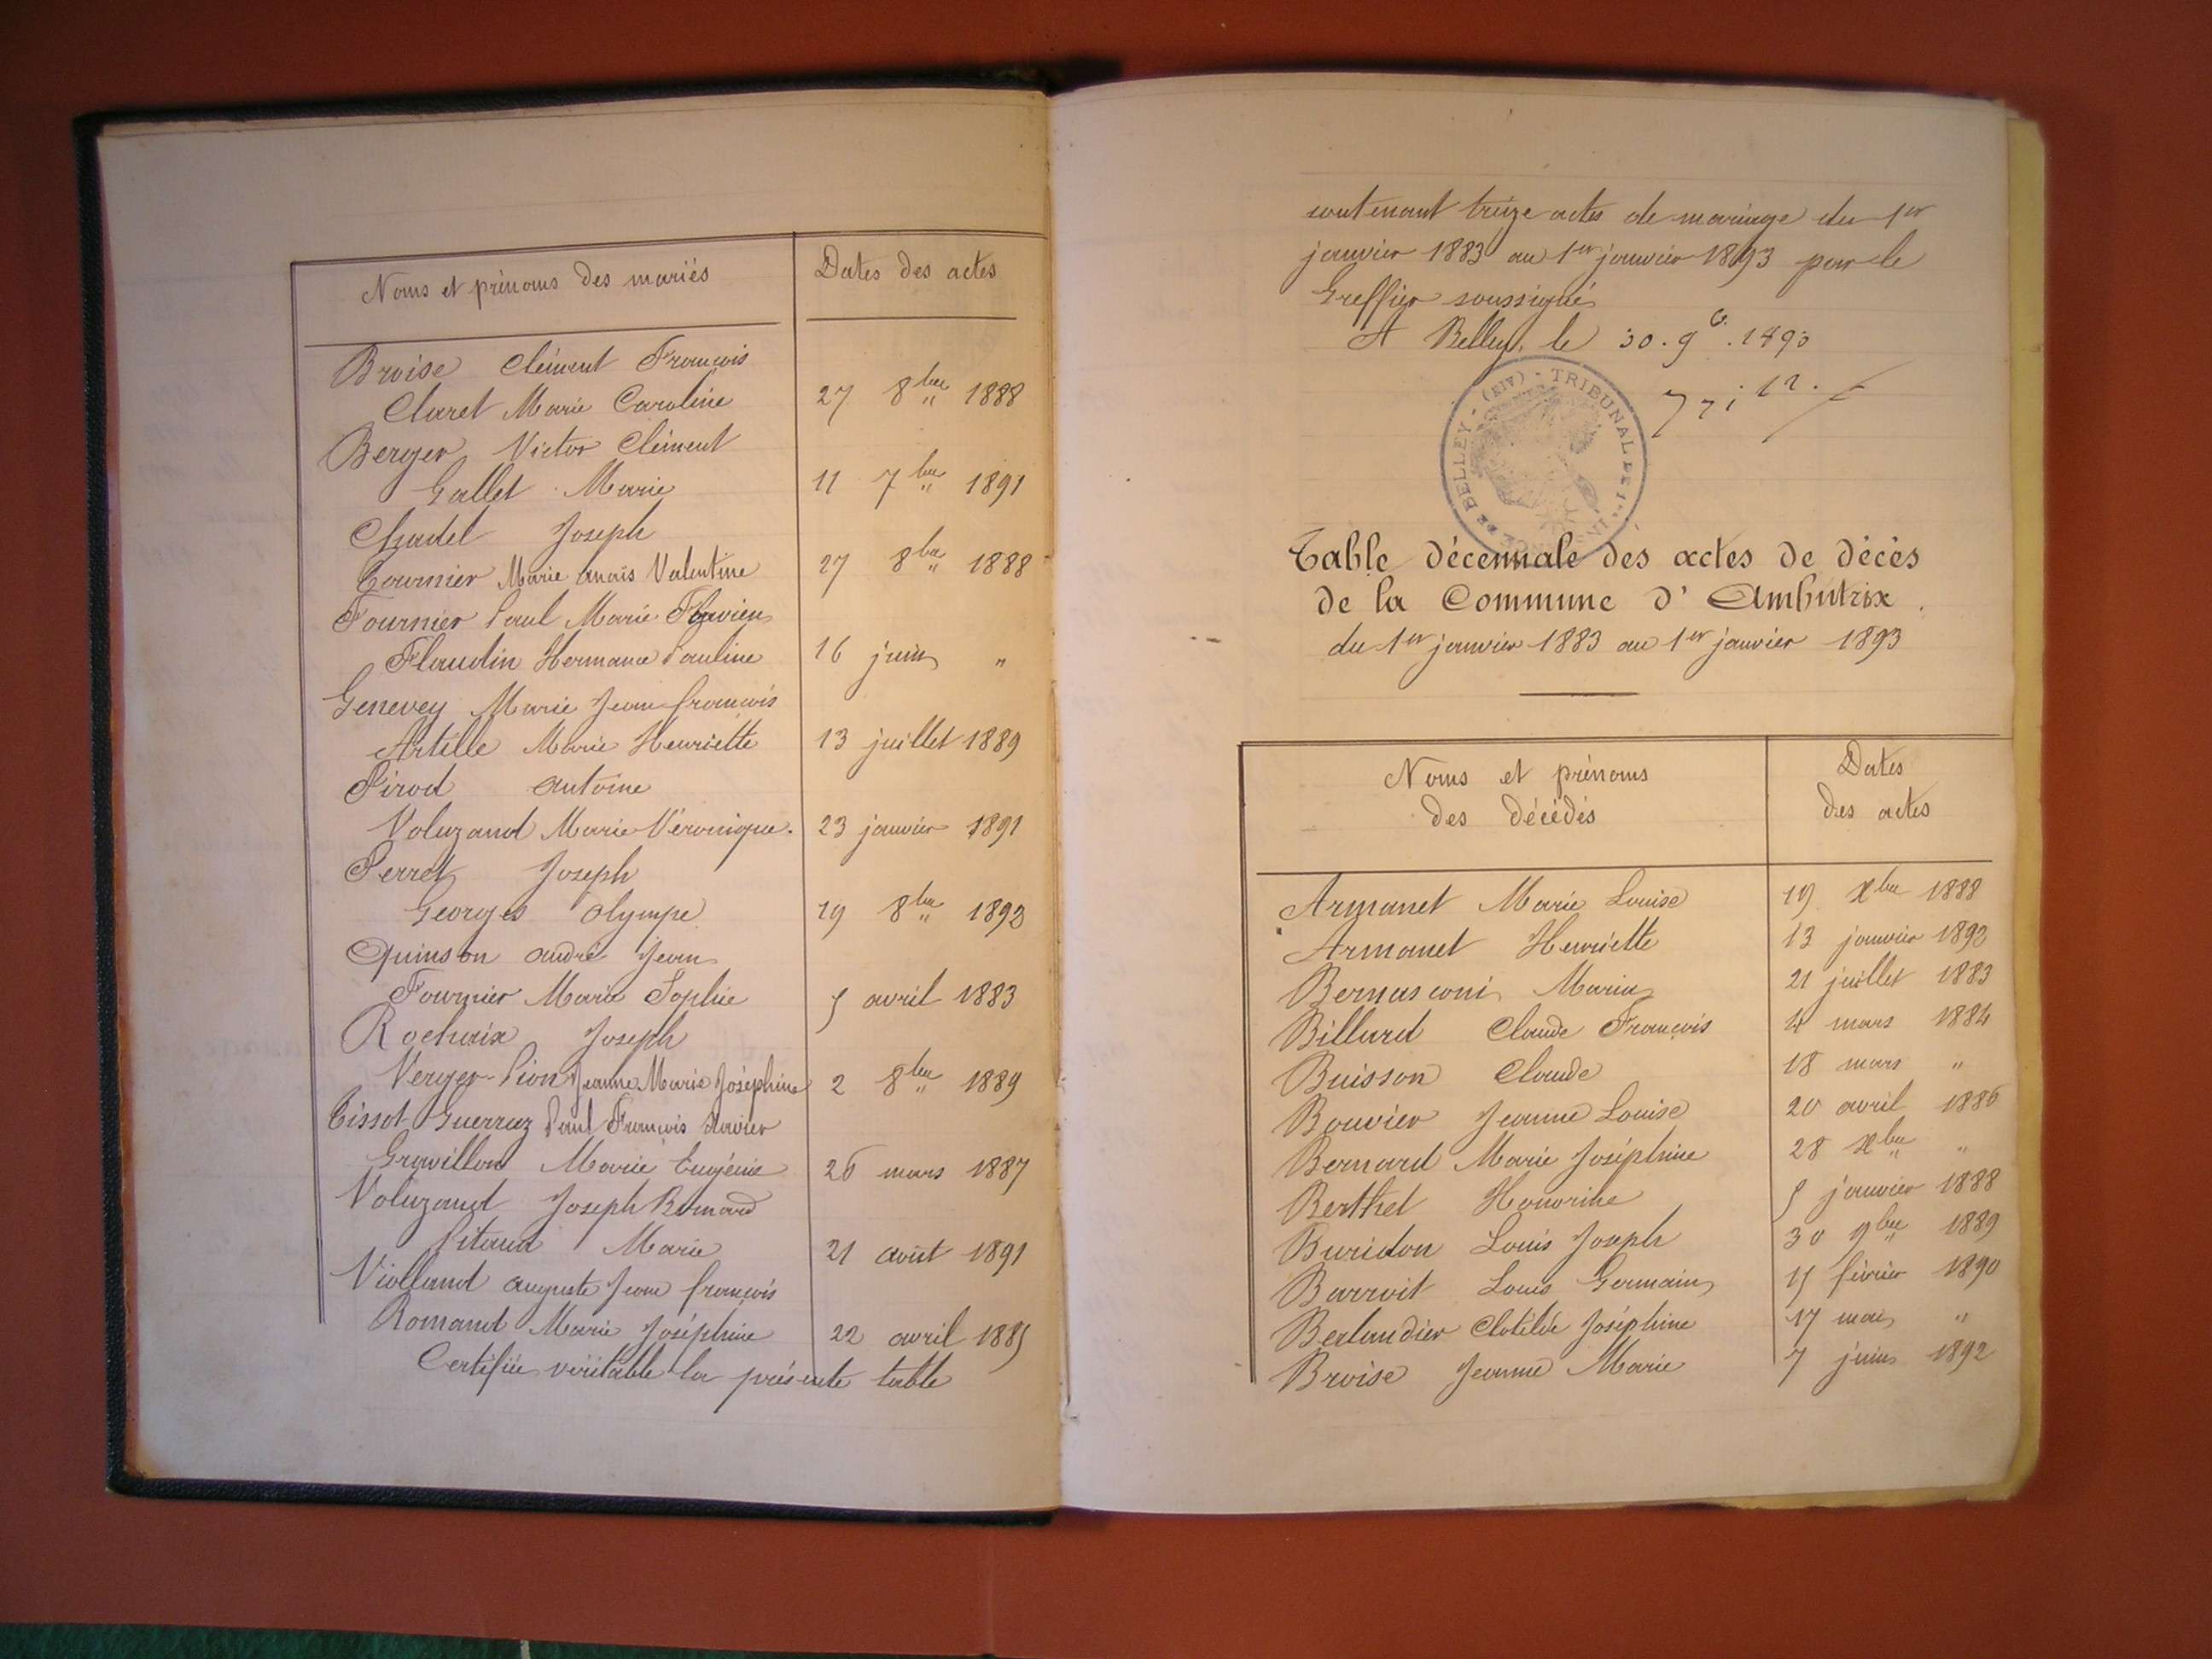 Noms et prénoms des mariés
Dates des actes
Broise Clément François
Claret Marie Caroline
27 8bre 1888
Berger Victor Clément
Gallet Marie
11 7bre 1891
Chadel Joseph
Tournier Marie Anaïs Valentine
27 8bre 1888
Fournier Paul Marie Flavien
Flaudin Hermance Pauline
16 juin "
Genevey Marie Jean françois
Artelle Marie Henriette
13 juillet 1889
Pirod Antoine
Voluzand Marie Véronique
23 janvier 1891
Perret Joseph
Georges Olympe
19 8bre 1892
Quinson André Jean
Fournier Marie Sophie
5 avril 1883
Rochaix Joseph
Verger-Pion Jeanne Marie Joséphine
2 8bre 1889
Tissot Guerraz Paul François Xavier
Gravillon Marie Eugénie
26 mars 1887
Voluzand Joseph Bernard
Pitaud Marie
21 août 1891
Violland Auguste Jean françois
Romand Marie Joséphine
22 avril 1885
Certifiée véritable la présente table
contenant treize actes de mariage du 1er
janvier 1883 au 1er janvier 1893 par le
Greffier soussigné
A Belley, le 30 . 9b . 1893
TRIBUNAL DE 1re INSTANCE DE BELLEY - (AIN) -
Table décennale des actes de décès
de la Commune d'Ambutrix.
du 1er janvier 1883 au 1er janvier 1893
Noms et prénoms
des décédés
Dates
des actes
Armanet Marie Louise 19 xbre 1888
Armanet Henriette 13 janvier 1892
Bernasconi Maria 21 juillet 1883
Billard Claude François 4 mars 1884
Buisson Claude 18 mars "
Bouvier Jeanne Louise 20 avril 1886
Bernard Marie Joséphine 28 xbre "
Berthet Honorine 5 janvier 1888
Buridon Louis Joseph 30 9bre 1889
Barroit Louis Germain 15 février 1890
Berlandier Clotilde Joséphine 17 mai "
Broise Jeanne Marie 7 juin 1892